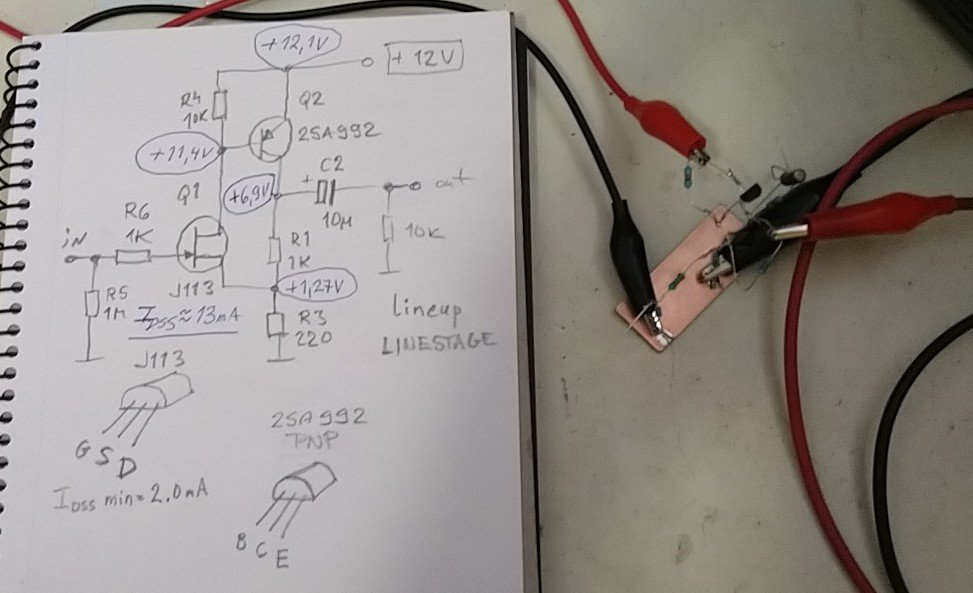 +12,1V
+12V
R4
10K
Q2
2SA992
+11,4V
C2
+
Q1
+6,9V
out
10µ
R6
1K
10K
iN
R1
1K
J113
+1,27V
R5
1M
IDSS≈13mA
R3
220
lineup
LINESTAGE
J113
G S D
IDSS min=2.0mA
2SA992
PNP
B C E